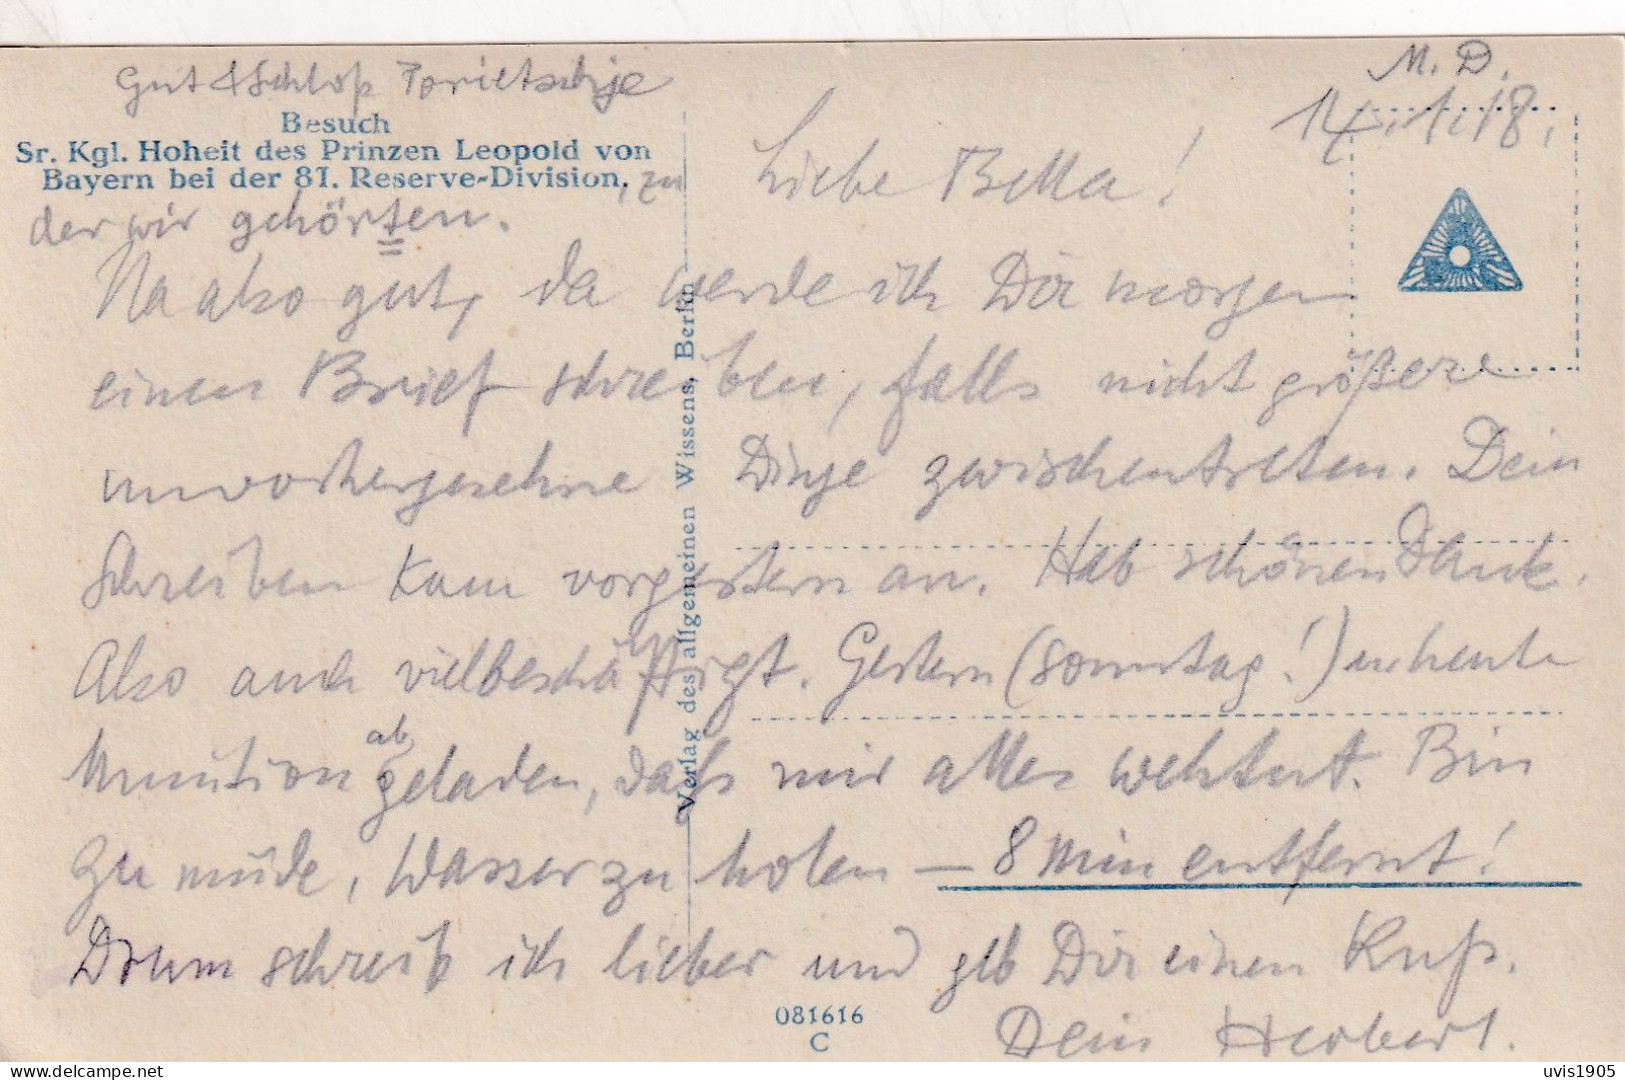 Gut & Schloß
Besuch
Sr. Kgl. Hoheit des Prinzen Leopold von
Bayern bei der 81. Reserve-Division, zu
der wir gehörten.
M. D.
14.1.18.
Liebe Bella!
Na also gut, da werde ich Dir morgen
einen Brief schreiben, falls nicht größere
unvorhergesehne Dinge zwischentreten. Dein
Schreiben kam vorgestern an. Hab schönen Dank.
Also auch vielbeschäftigt. Gestern (Sonntag!) u heute
Munition abgeladen, daß mir alles wehtut. Bin
zu müde, Wasser zu holen – 8 Min entfernt!
Drum schreib ich lieber und geb Dir einen Kuß.
Dein Herbert.
Verlag des allgemeinen Wissens, Berlin
081616
C
uvis1905